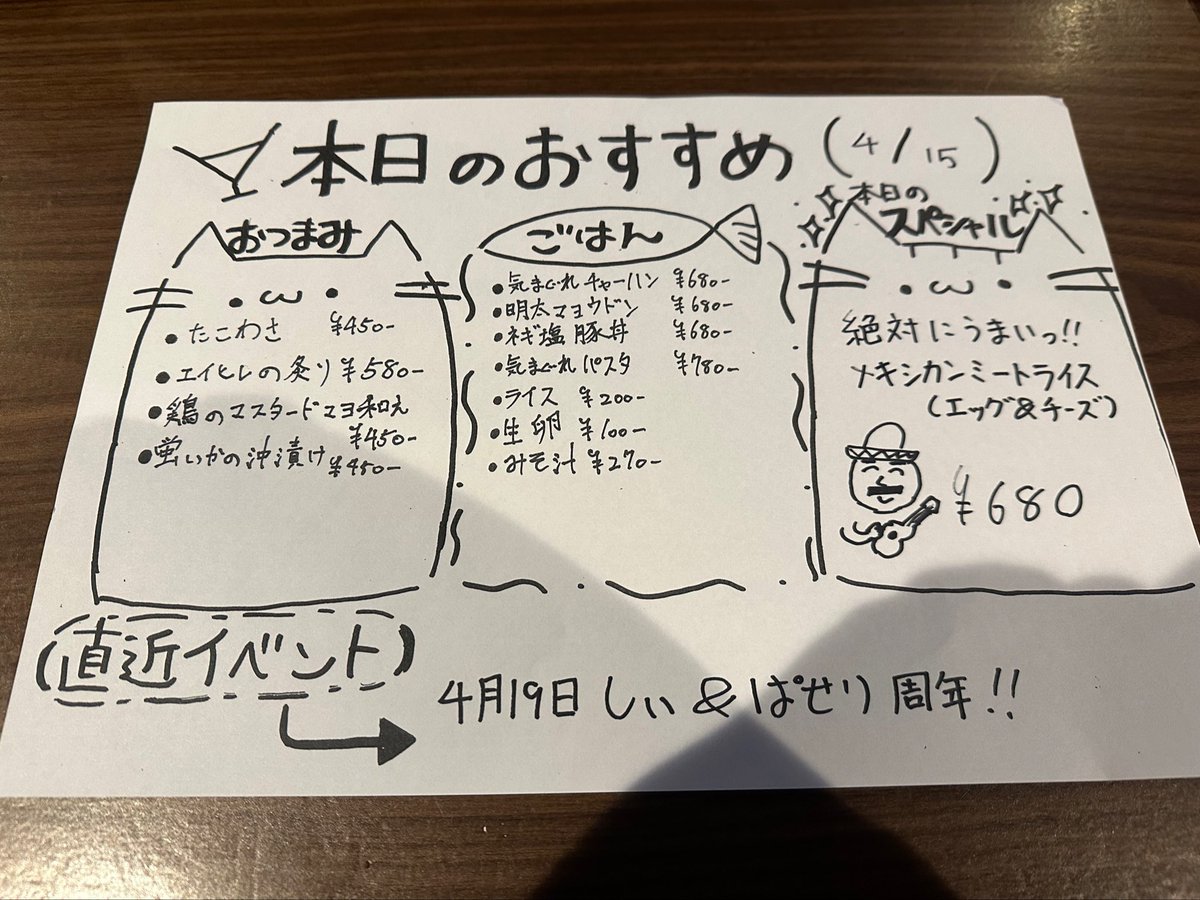 本日のおすすめ (4/15)
おつまみ
・ω・
●たこわさ ¥450-
●エイヒレの炙り ¥580-
●鶏のマスタードマヨ和え
¥450-
●蛍いかの沖漬け ¥450-
ごはん
●気まぐれチャーハン ¥680-
●明太マヨウドン ¥680-
●ネギ塩豚丼 ¥680-
●気まぐれパスタ ¥780-
●ライス ¥200-
●生卵 ¥100-
●みそ汁 ¥270-
本日の
スペシャル
・ω・
絶対にうまいっ!!
メキシカンミートライス
(エッグ&チーズ)
¥680
(直近イベント)
4月19日 しぃ&ぱせり周年!!